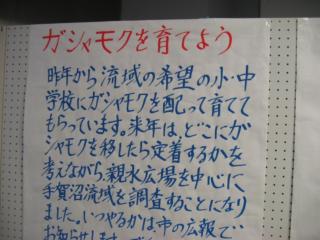 ガシャモクを育てよう
昨年から流域の希望の小・中
学校にガシャモクを配って育てて
もらっています。来年は、どこにガ
シャモクを移したら定着するかを
考えながら、親水広場を中心に
手賀沼流域を調査することになり
ました。いつやるかは市の広報で
お知らせします。